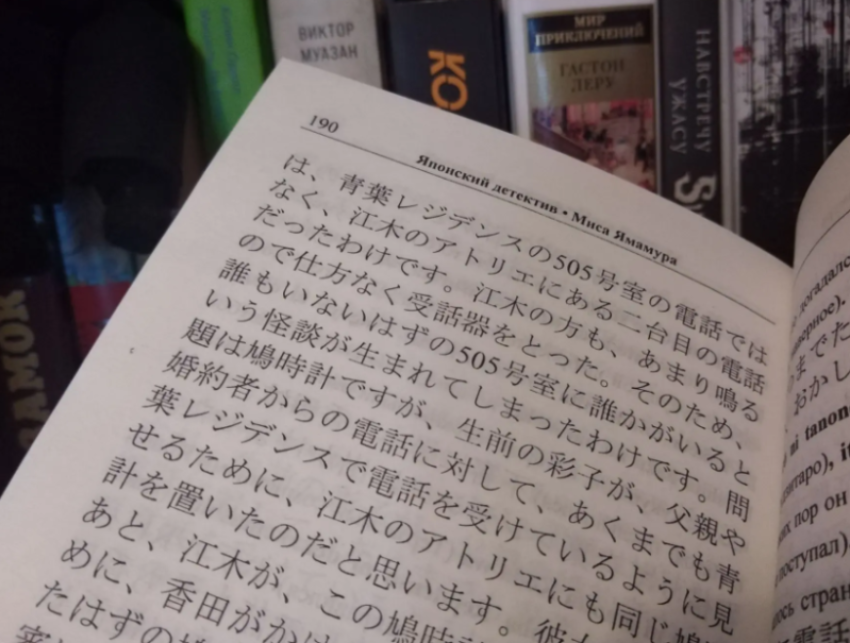 ВИКТОР
МУАЗАН
КО
МИР
ПРИКЛЮЧЕНИЙ
ГАСТОН
ЛЕРУ
НАВСТРЕЧУ
УЖАСУ
190
Японский детектив • Миса Ямамура
は、青葉レジデンスの505号室の電話では
なく、江木のアトリエにある二台目の電話
だったわけです。江木の方も、あまり鳴る
ので仕方なく受話器をとった。そのため、
誰もいないはずの505号室に誰かがいると
いう怪談が生まれてしまったわけです。問
題は鳩時計ですが、生前の彩子が、父親や
婚約者からの電話に対して、あくまでも青
葉レジデンスで電話を受けているように見
せるために、江木のアトリエにも同じ鳩
計を置いたのだと思います。彼
あと、江木が、この鳩時計
めに、香田がかけ
たはずの
догадалс
までた
おかし
tanon
), it
их рог он
поступал)
ось стран
電話